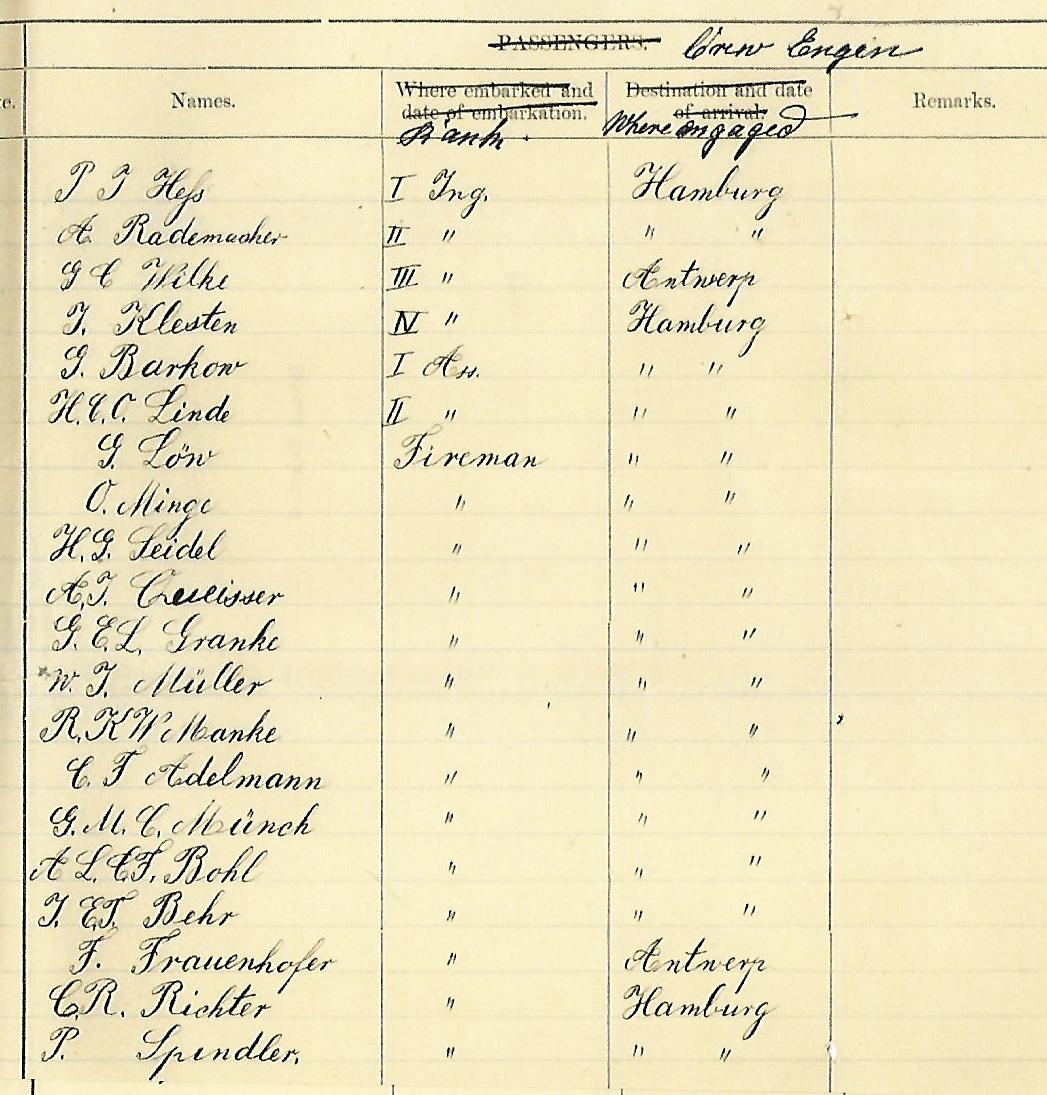 PASSENGERS. Crew Engin
te. Names. Where embarked and date of embarkation. Destination and date of arrival. Remarks.
Rank. Where engaged
P J Hess I Ing. Hamburg
A. Rademacher II " " "
G C Wilke III " Antwerp
J. Klesten IV " Hamburg
G. Barkow I Ass. " "
H.E.C. Linde II " " "
G. Löw Fireman " "
O. Minge " " "
H.G. Seidel " " "
A.J. Queisser " " "
G.E.L. Granke " " "
W. J. Müller " " "
R.K W Manke " " "
C. F Adelmann " " "
G.M.C. Münch " " "
A L.C F. Bohl " " "
J. E.T. Behr " " "
F. Frauenhofer " Antwerp
C.R. Richter " Hamburg
P. Spindler. " " "